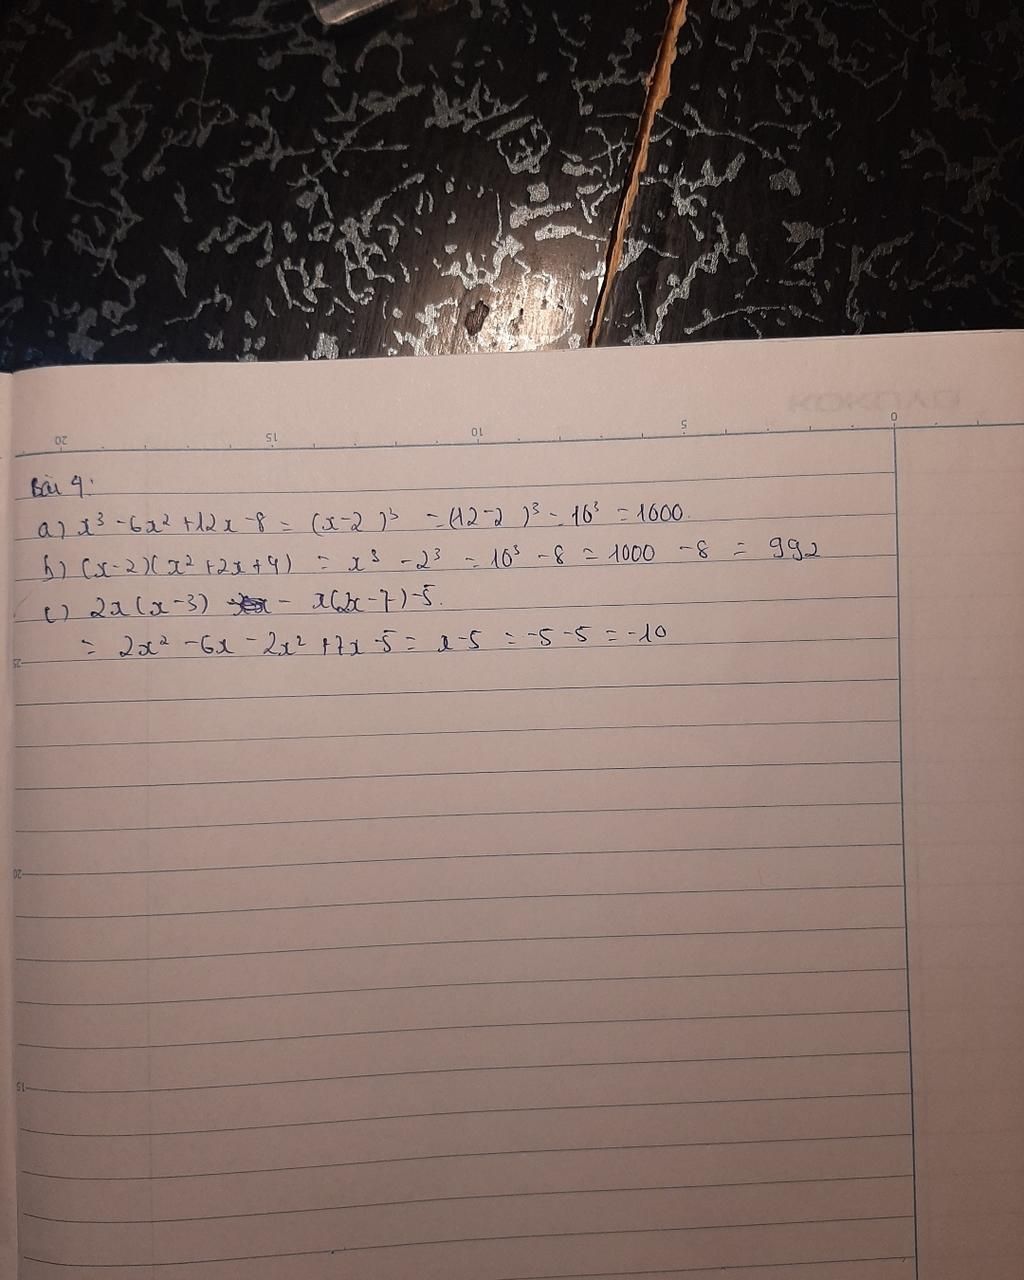 KOKUYO
20 15 10 5 0
Bài 4:
a) x³ - 6x² + 12x - 8 = (x-2)³ = (12-2)³ = 10³ = 1000.
b) (x-2)(x² + 2x + 4) = x³ - 2³ = 10³ - 8 = 1000 - 8 = 992
c) 2x(x-3) - x(2x-7) - 5.
= 2x² - 6x - 2x² + 7x - 5 = x - 5 = -5 - 5 = -10
25
20
15